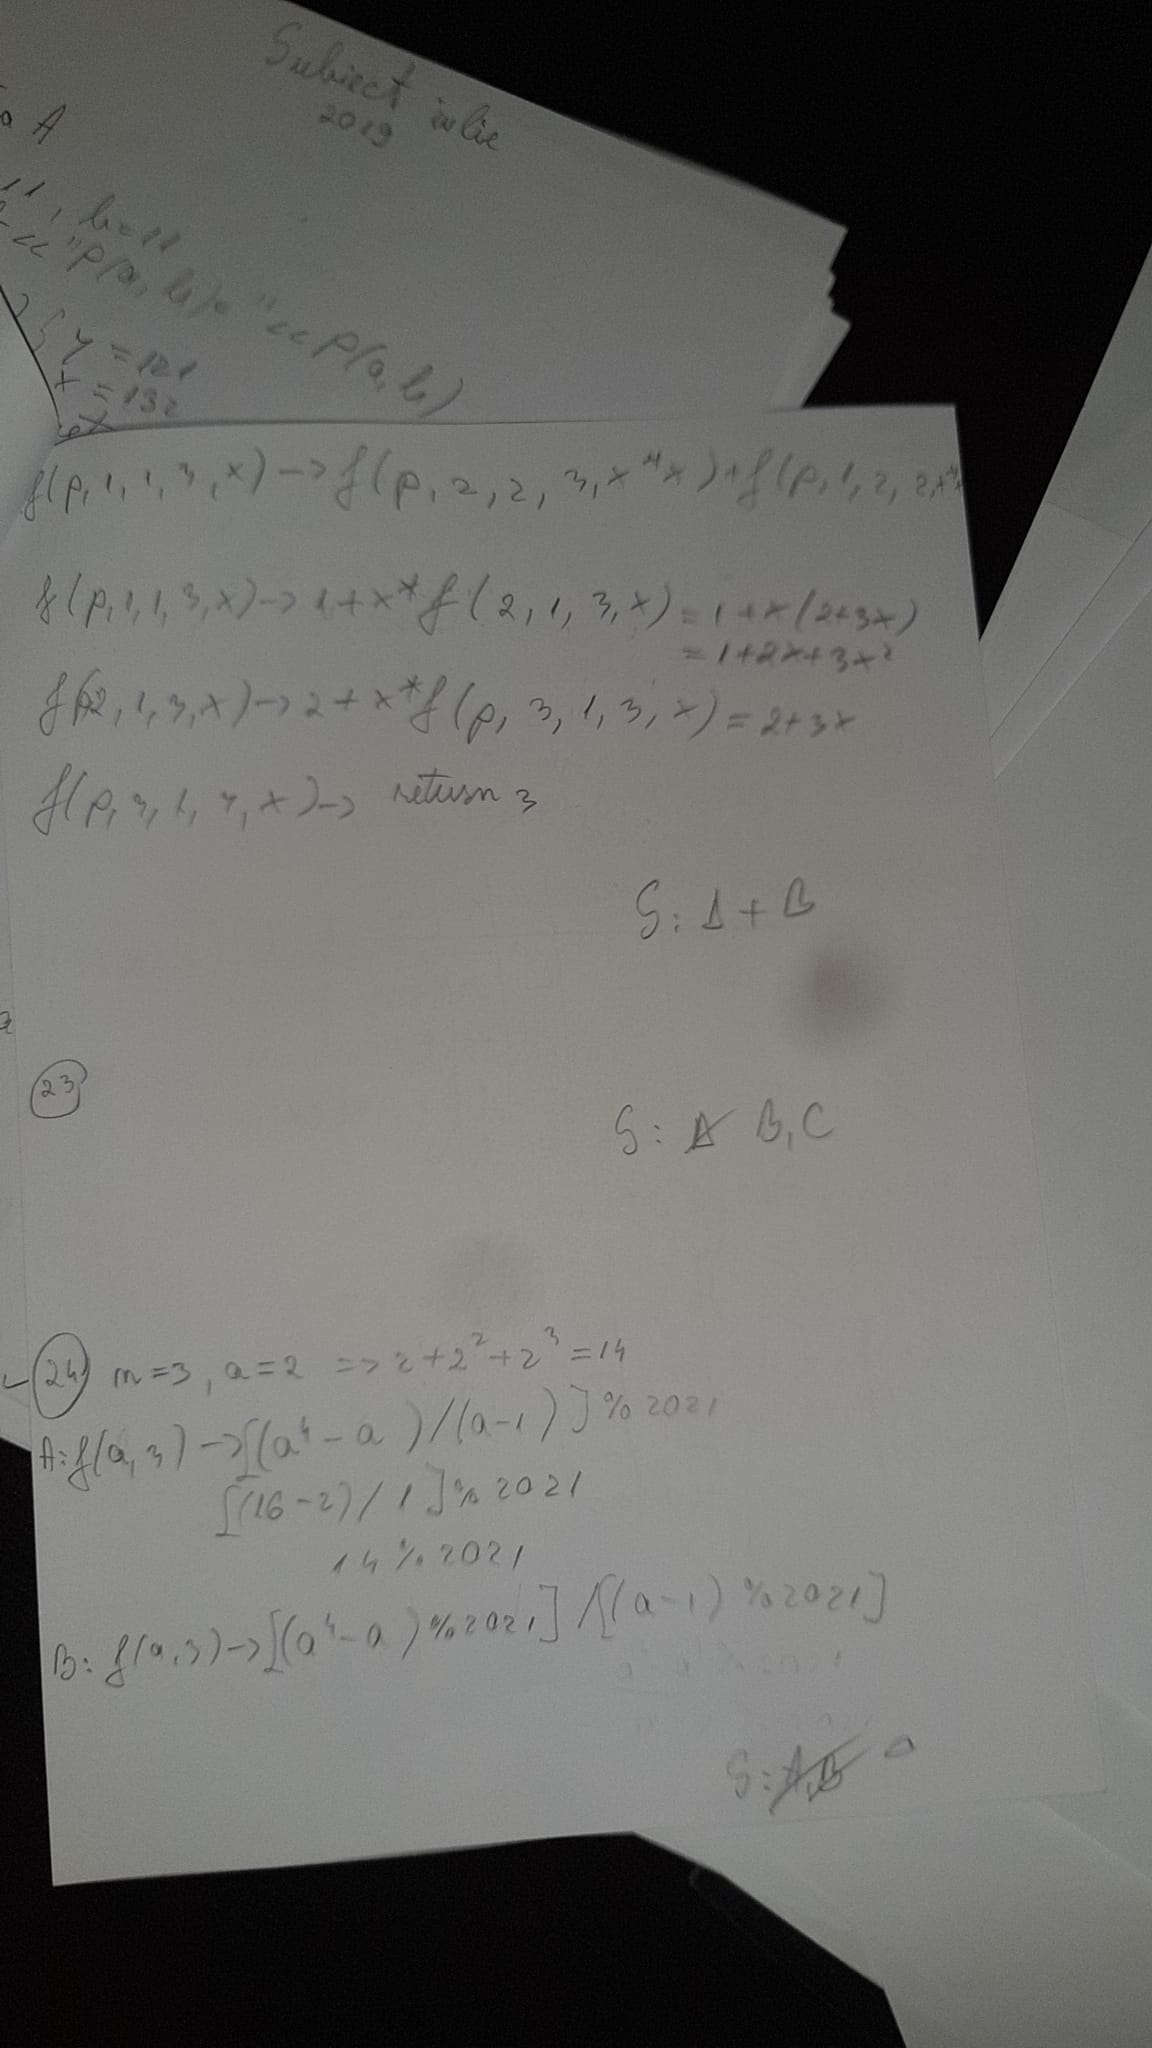 Subiect iulie
2019
a A
", b=11
<< "P(a, b)= " << P(a, b)
y = 121
x = 132
f(p, 1, 1, 3, x) -> f(p, 2, 2, 3, x*x) + f(p, 1, 2, 2, x*
f(p, 1, 1, 3, x) -> 1 + x* f(2, 1, 3, x) = 1 + x(2+3x)
= 1+2x+3x²
f(p2, 1, 3, x) -> 2 + x* f(p, 3, 1, 3, x) = 2+3x
f(p, 3, 1, 3, x) -> return 3
S: A + B
23
S: A B, C
24 m=3, a=2 => 2+2²+2³ = 14
A: f(a, 3) -> [(a⁴ - a) / (a-1)] % 2021
[(16-2) / 1] % 2021
14 % 2021
B: f(a, 3) -> [(a⁴ - a) % 2021] / [(a-1) % 2021]
S: A, B